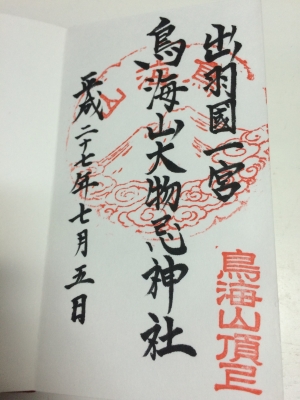 出羽國一宮
鳥海山頂上
鳥海山大物忌神社
平成二十七年七月五日
鳥海山